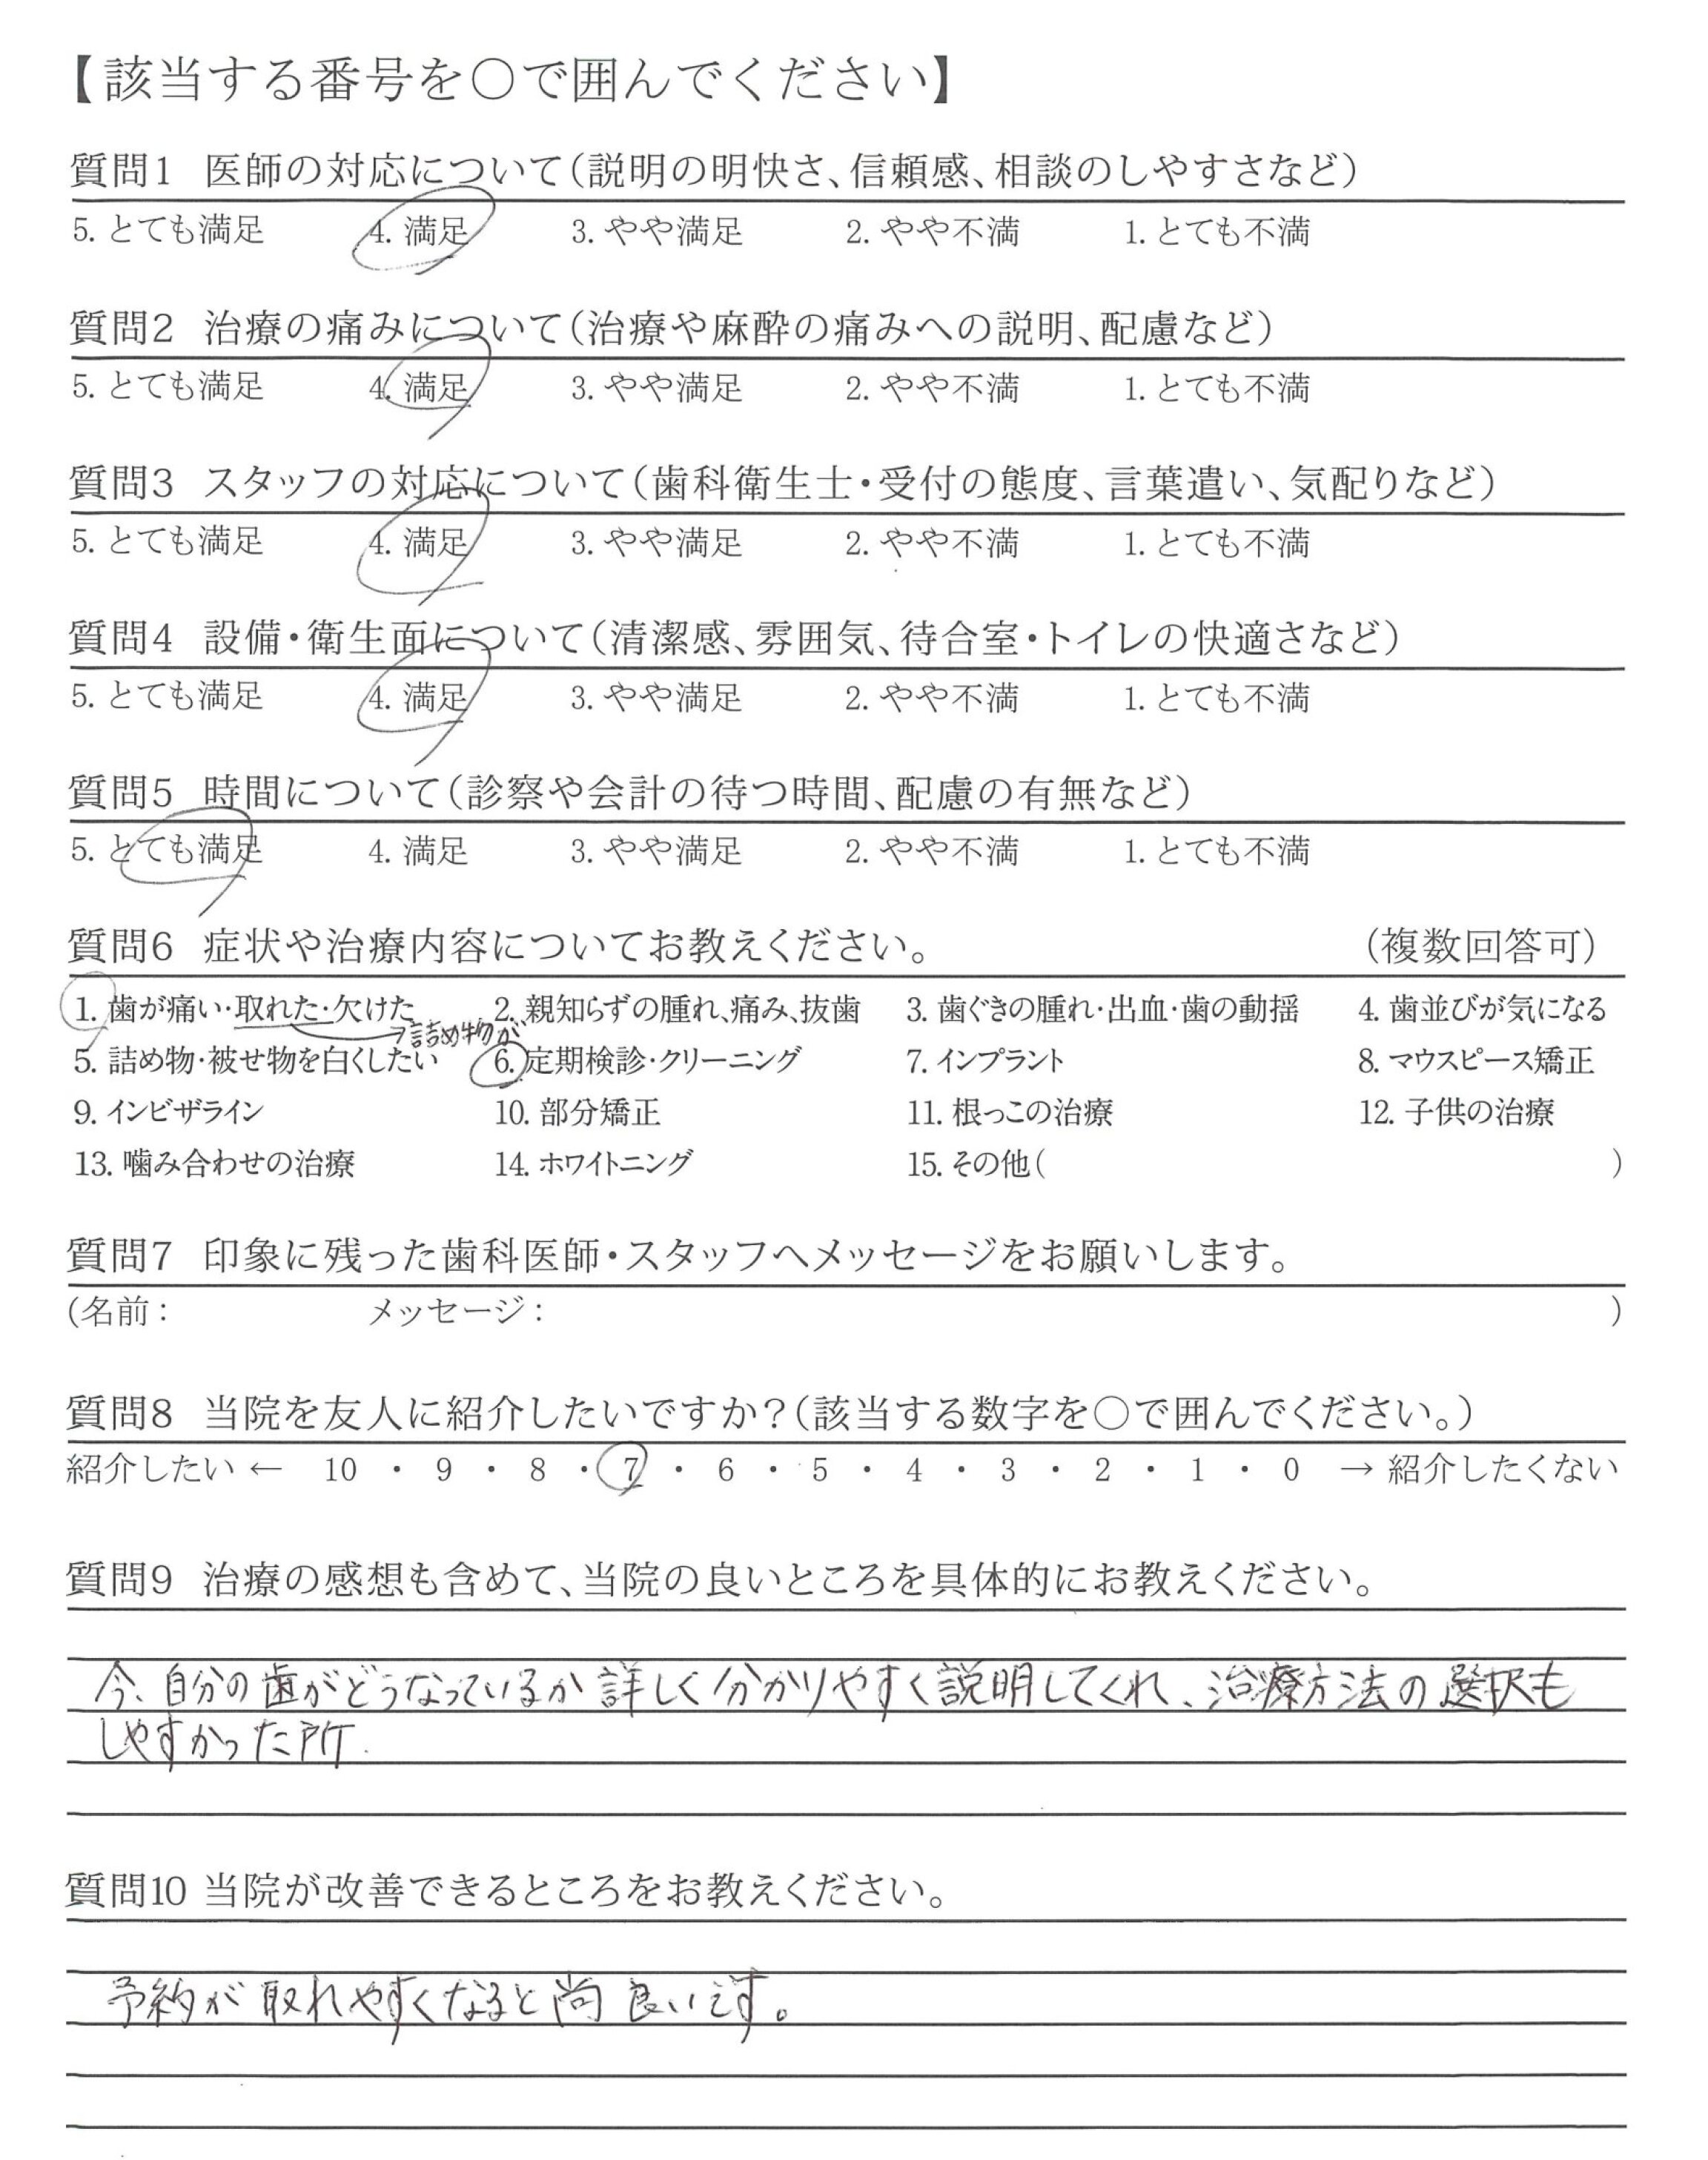 【該当する番号を○で囲んでください】
質問1 医師の対応について(説明の明快さ、信頼感、相談のしやすさなど)
5. とても満足 4. 満足 3. やや満足 2. やや不満 1. とても不満
質問2 治療の痛みについて(治療や麻酔の痛みへの説明、配慮など)
5. とても満足 4. 満足 3. やや満足 2. やや不満 1. とても不満
質問3 スタッフの対応について(歯科衛生士・受付の態度、言葉遣い、気配りなど)
5. とても満足 4. 満足 3. やや満足 2. やや不満 1. とても不満
質問4 設備・衛生面について(清潔感、雰囲気、待合室・トイレの快適さなど)
5. とても満足 4. 満足 3. やや満足 2. やや不満 1. とても不満
質問5 時間について(診察や会計の待つ時間、配慮の有無など)
5. とても満足 4. 満足 3. やや満足 2. やや不満 1. とても不満
質問6 症状や治療内容についてお教えください。 (複数回答可)
1. 歯が痛い・取れた・欠けた 2. 親知らずの腫れ、痛み、抜歯 3. 歯ぐきの腫れ・出血・歯の動揺 4. 歯並びが気になる
→詰め物が
5. 詰め物・被せ物を白くしたい 6. 定期検診・クリーニング 7. インプラント 8. マウスピース矯正
9. インビザライン 10. 部分矯正 11. 根っこの治療 12. 子供の治療
13. 噛み合わせの治療 14. ホワイトニング 15. その他( )
質問7 印象に残った歯科医師・スタッフへメッセージをお願いします。
(名前: メッセージ: )
質問8 当院を友人に紹介したいですか?(該当する数字を○で囲んでください。)
紹介したい ← 10 ・ 9 ・ 8 ・ 7 ・ 6 ・ 5 ・ 4 ・ 3 ・ 2 ・ 1 ・ 0 → 紹介したくない
質問9 治療の感想も含めて、当院の良いところを具体的にお教えください。
今、自分の歯がどうなっているか詳しく分かりやすく説明してくれ、治療方法の選択も
しやすかった所.
質問10 当院が改善できるところをお教えください。
予約が取れやすくなると尚良いです。